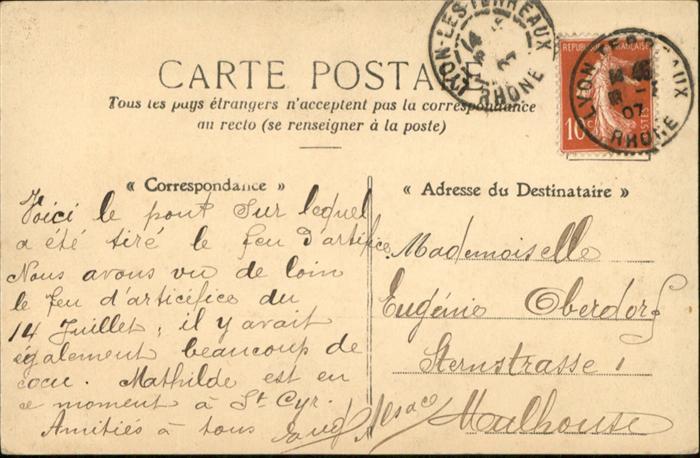 LYON-LES-TERREAUX
RHONE
REPUBLIQUE FRANÇAISE
10
POSTES
LYON TERREAUX
07
RHONE
CARTE POSTALE
Tous les pays étrangers n'acceptent pas la correspondance
au recto (se renseigner à la poste)
« Correspondance »
Voici le pont sur lequel
a été tiré le feu d'artifice.
Nous avons vu de loin
le feu d'articéfice du
14 Juillet, il y avait
également beaucoup de
Mathilde est en
ce moment à St Cyr.
Amitiés à tous
« Adresse du Destinataire »
Mademoiselle
Eugénie Oberdorf
Sternstrasse 1
Mulhouse
Alsace